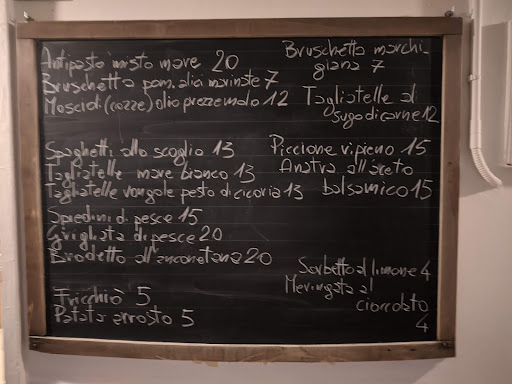 Antipasto misto mare 20
Bruschetta pom. alici marinate 7
Moscioli (cozze) olio prezzemolo 12
Spaghetti allo scoglio 13
Tagliatelle mare bianco 13
Tagliatelle vongole pesto di cicoria 13
Spiedini di pesce 15
Grigliata di pesce 20
Brodetto all'anconetana 20
Fricchiò 5
Patate arrosto 5
Bruschetta marchi-
giana 7
Tagliatelle al
sugo di carne 12
Piccione ripieno 15
Anatra all'aceto
balsamico 15
Sorbetto al limone 4
Meringata al
cioccolato
4